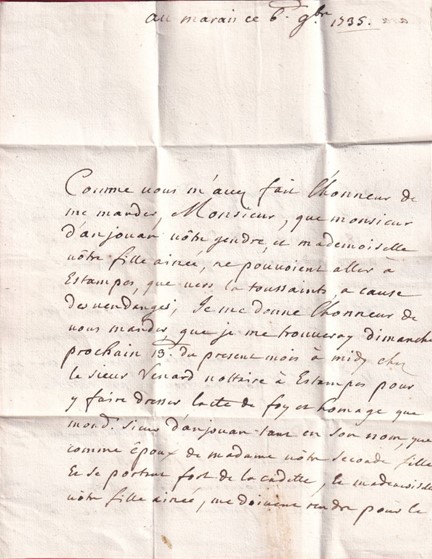 au marais ce 6e. 9bre 1735.
Comme vous m'avez fait l'honneur de
me mander, Monsieur, que monsieur
d'anjouan vôtre gendre, et mademoiselle
vôtre fille ainée, ne pouvoient aller à
Estampes, que vers la toussaints à cause
des vendanges, Je me donne l'honneur de
vous mander que je me trouveray dimanche
prochain 13. du present mois à midy chez
le sieur Venard nottaire à Estampes pour
y faire dresser l'acte de foy et homage que
mond. sieur d'anjouan tant en son nom, que
comme Epoux de madame vôtre seconde fille
Et se portant fort de la cadette, Et mademoiselle
vôtre fille ainée, me doivent rendre pour le